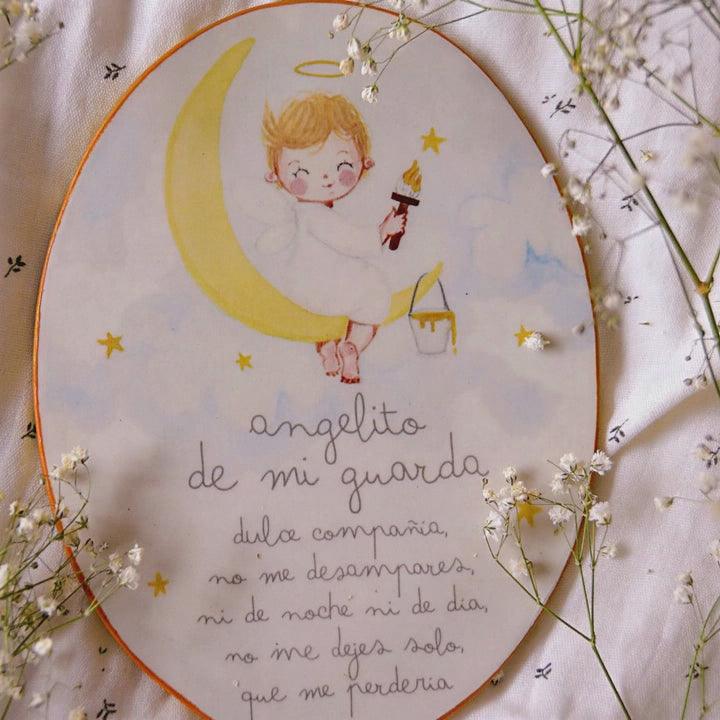 angelito
de mi guarda
dulce compañia,
no me desampares,
ni de noche ni de dia,
no me dejes solo,
que me perderia